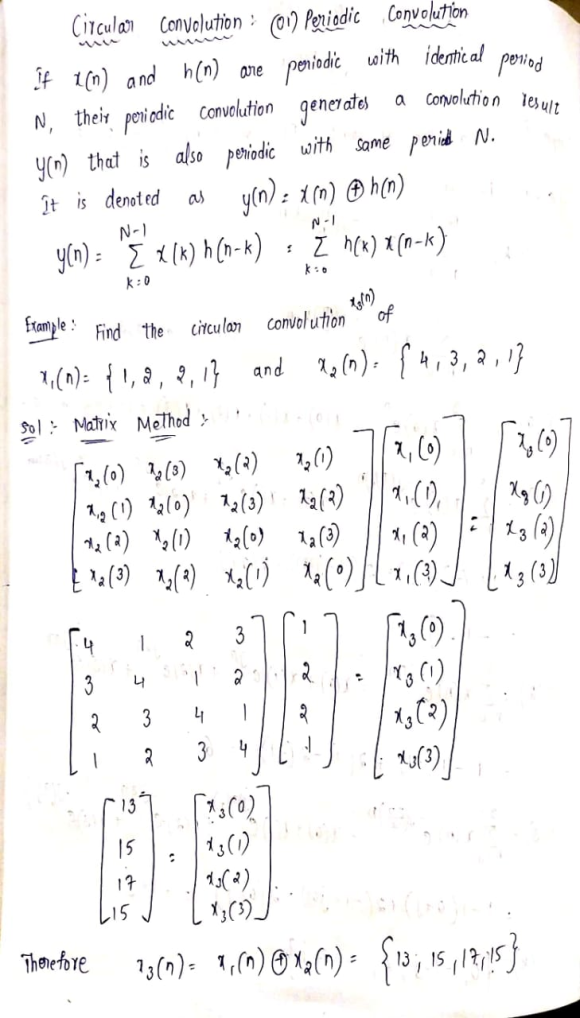 Circular Convolution : (or) Periodic Convolution
If x(n) and h(n) are periodic with identical period
N, their periodic convolution generates a convolution result
y(n) that is also periodic with same period N.
It is denoted as y(n) = x(n) ⊕ h(n)
y(n) = N-1 Σ k=0 x(k) h(n-k) = N-1 Σ k=0 h(k) x(n-k)
Example : Find the circular convolution x₃(n) of
x₁(n) = {1, 2, 2, 1} and x₂(n) = {4, 3, 2, 1}
Sol :- Matrix Method :-
[x₂(0) x₂(3) x₂(2) x₂(1)] [x₁(0)] [x₃(0)]
[x₂(1) x₂(0) x₂(3) x₂(2)] [x₁(1)] = [x₃(1)]
[x₂(2) x₂(1) x₂(0) x₂(3)] [x₁(2)] [x₃(2)]
[x₂(3) x₂(2) x₂(1) x₂(0)] [x₁(3)] [x₃(3)]
[4 1 2 3] [1] [x₃(0)]
[3 4 1 2] [2] = [x₃(1)]
[2 3 4 1] [2] [x₃(2)]
[1 2 3 4] [1] [x₃(3)]
[13] [x₃(0)]
[15] = [x₃(1)]
[17] [x₃(2)]
[15] [x₃(3)]
Therefore x₃(n) = x₁(n) ⊕ x₂(n) = {13, 15, 17, 15}